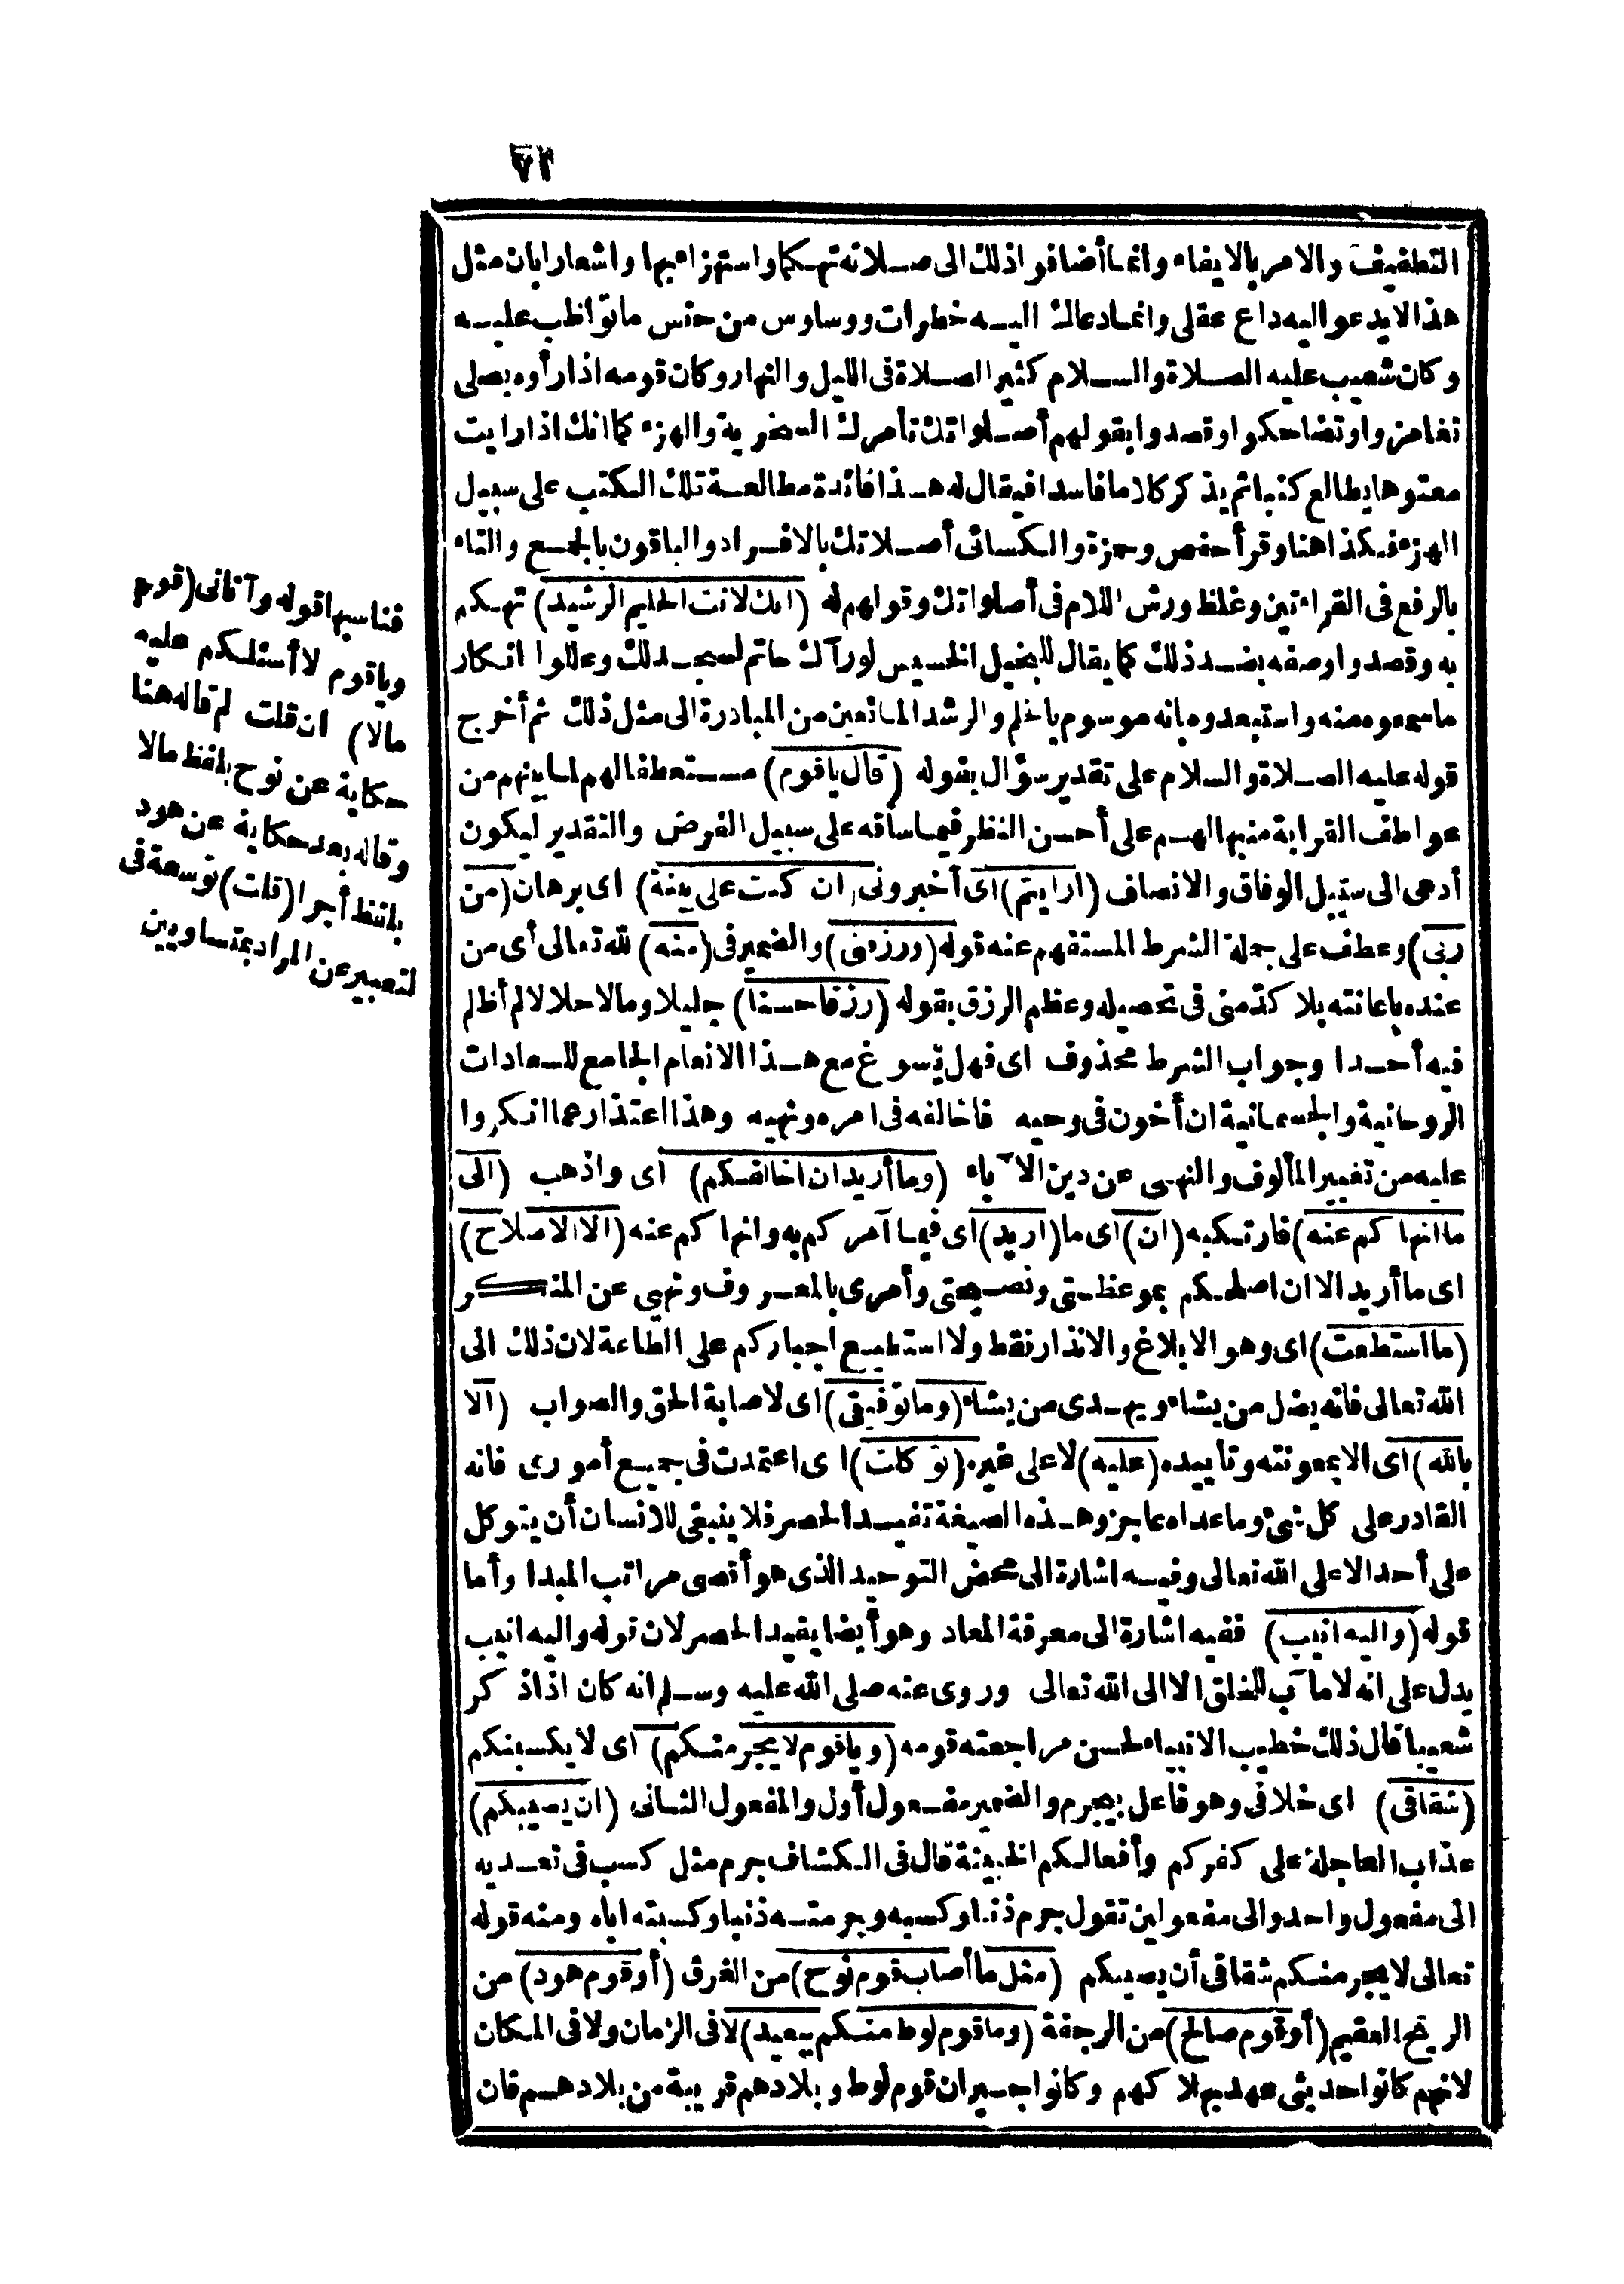 ٧٢
التطفيف والامر بالايفاء وانما أضافوا ذلك الى صلاته تهكما واستهزاء بها واشعارا بان مثل
هذا لا يدعو اليه داع عقلى وانما دعاك اليه خطرات ووساوس من جنس ما تواظب عليه
وكان شعيب عليه الصلاة والسلام كثير الصلاة فى الليل والنهار وكان قومه اذا رأوه يصلى
تغامزوا وتضاحكوا وقصدوا بقولهم أصلواتك تأمرك السخرية والهزء كما انك اذا رايت
معتوها يطالع كتبا ثم يذكر كلاما فاسدا فيقال له هذا فائدة مطالعة تلك الكتب على سبيل
الهزء فكذا هنا وقرأ حفص وحمزة والكسائى أصلاتك بالافراد والباقون بالجمع والتاء
بالرفع فى القراءتين وغلظ ورش اللام فى أصلواتك وقولهم له (انك لانت الحليم الرشيد) تهكم
به وقصدوا وصفه بضد ذلك كما يقال للبخيل الخسيس لو رآك حاتم لسجد لك وعللوا انكار
ما سمعوه منه واستبعدوه بانه موسوم بالحلم والرشد المانعين من المبادرة الى مثل ذلك ثم أخرج
قوله عليه الصلاة والسلام على تقدير سؤال بقوله (قال ياقوم) مستعطفا لهم لما بينهم من
عواطف القرابة منبها لهم على أحسن النظر فيما ساقه على سبيل الفرض والتقدير ليكون
أدعى الى سبيل الوفاق والانصاف (ارايتم) اى أخبرونى (ان كنت على بينة) اى برهان (من
ربى) وعطف على جملة الشرط المستفهم عنه قوله (ورزقنى) والضمير فى (منه) لله تعالى أى من
عنده باعانته بلا كد منى فى تحصيله وعظم الرزق بقوله (رزقا حسنا) جليلا ومالا حلالا لم أظلم
فيه أحدا وجواب الشرط محذوف اى فهل يسوغ مع هذا الانعام الجامع للسعادات
الروحانية والجسمانية ان أخون فى وحيه فاخالفه فى امره ونهيه وهذا اعتذار عما انكروا
عليه من تغيير المألوف والنهى عن دين الآباء (وما أريد ان اخالفكم) اى واذهب (الى
ما انها كم عنه) فارتكبه (ان) اى ما (اريد) اى فيما آمر كم به وانها كم عنه (الا الاصلاح)
اى ما أريد الا ان اصلحكم بموعظتى ونصيحتى وأمرى بالمعروف ونهيى عن المنكر
(ما استطعت) اى وهو الابلاغ والانذار فقط ولا استطيع اجبار كم على الطاعة لان ذلك الى
الله تعالى فانه يضل من يشاء ويهدى من يشاء (وما توفيقى) اى لاصابة الحق والصواب (الا
بالله) اى الا بمعونته وتأييده (عليه) لا على غيره (توكلت) اى اعتمدت فى جميع أمورى فانه
القادر على كل شئ وما عداه عاجز وهذه الصيغة تفيد الحصر فلا ينبغى للانسان أن يتوكل
على أحد الا على الله تعالى وفيه اشارة الى محض التوحيد الذى هو أقصى مراتب المبدا وأما
قوله (واليه انيب) ففيه اشارة الى معرفة المعاد وهو أيضا يفيد الحصر لان قوله واليه انيب
يدل على انه لا مآب للخلق الا الى الله تعالى وروى عنه صلى الله عليه وسلم انه كان اذا ذكر
شعيبا قال ذلك خطيب الانبياء لحسن مراجعته قومه (وياقوم لا يجرمنكم) اى لا يكسبنكم
(شقاقى) اى خلافى وهو فاعل يجرم والضمير مفعول أول والمفعول الثانى (ان يصيبكم)
عذاب العاجلة على كفركم وأفعالكم الخبيثة قال فى الكشاف جرم مثل كسب فى تعديه
الى مفعول واحد والى مفعولين تقول جرم ذنبا وكسبه وجرمته ذنبا وكسبته اياه ومنه قوله
تعالى لا يجرمنكم شقاقى أن يصيبكم (مثل ما أصاب قوم نوح) من الغرق (أو قوم هود) من
الريح العقيم (أو قوم صالح) من الرجفة (وما قوم لوط منكم ببعيد) لا فى الزمان ولا فى المكان
لانهم كانوا حديثى عهد بهلا كهم وكانوا جيران قوم لوط وبلادهم قريبة من بلادهم فان
فناسبها قوله وآتانى (قوله
وياقوم لا أسئلكم عليه
مالا) ان قلت لم قاله هنا
حكاية عن نوح بلفظ مالا
وقاله بعد حكاية عن هود
بلفظ أجرا (قلت) توسعة فى
لتعبير عن المراد بمتساويين